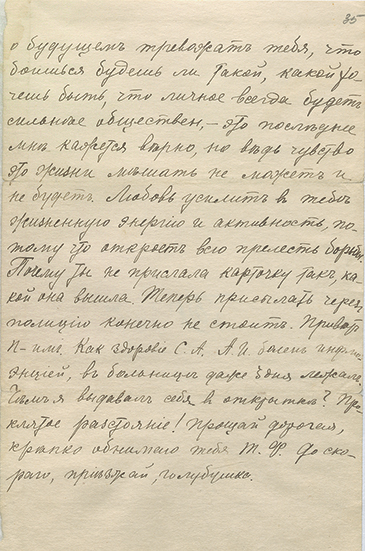 35
о будущемъ тревожатъ тебя, что
боишься будешь ли такой, какой хо-
чешь быть, что личное всегда будетъ
сильнѣе обществен, – это послѣднее
мнѣ кажется вѣрно, но вѣдь чувство
это жизни мѣшать не можетъ и
не будетъ. Любовь усилитъ въ тебѣ
жизненную энергію и активность, по-
тому что откроетъ всю прелесть борьбы.
Почему ты не прислала карточку такъ, ка-
кой она вышла. Теперь присылать черезъ
полицію конечно не стоитъ.
Какъ здоровье С. А. А. И. боленъ инфлю-
энціей, въ больницѣ даже 3 дня лежалъ.
Чѣмъ я выдавалъ себя в открыткѣ? Про-
клятое разстояніе! Прощай дорогая,
крѣпко обнимаю тебя Т. Ф. До ско-
раго, пріѣзжай, голубушка.